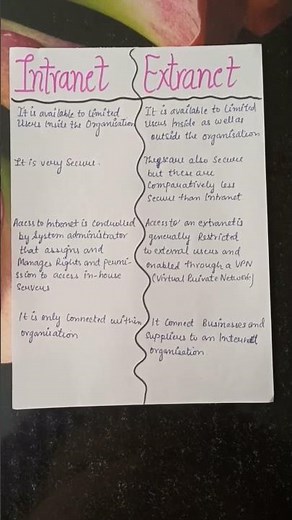 Intranet
It is available to limited
Users Inside the Organisation
It is very Secure.
Access to Internet is controlled
by System administrator
that assigns and
Manages Rights and permi-
ssion to access in-house
Servers
It is only connected within
organisation
Extranet
It is available to limited
Users Inside as well as
outside the organisation
They are also Secure
but these are
comparatively less
Secure than Intranet
Access to an extranet is
generally Restricted
to external users and
enabled through a VPN
(Virtual Private Network)
It Connect Businesses and
suppliers to an
organisation